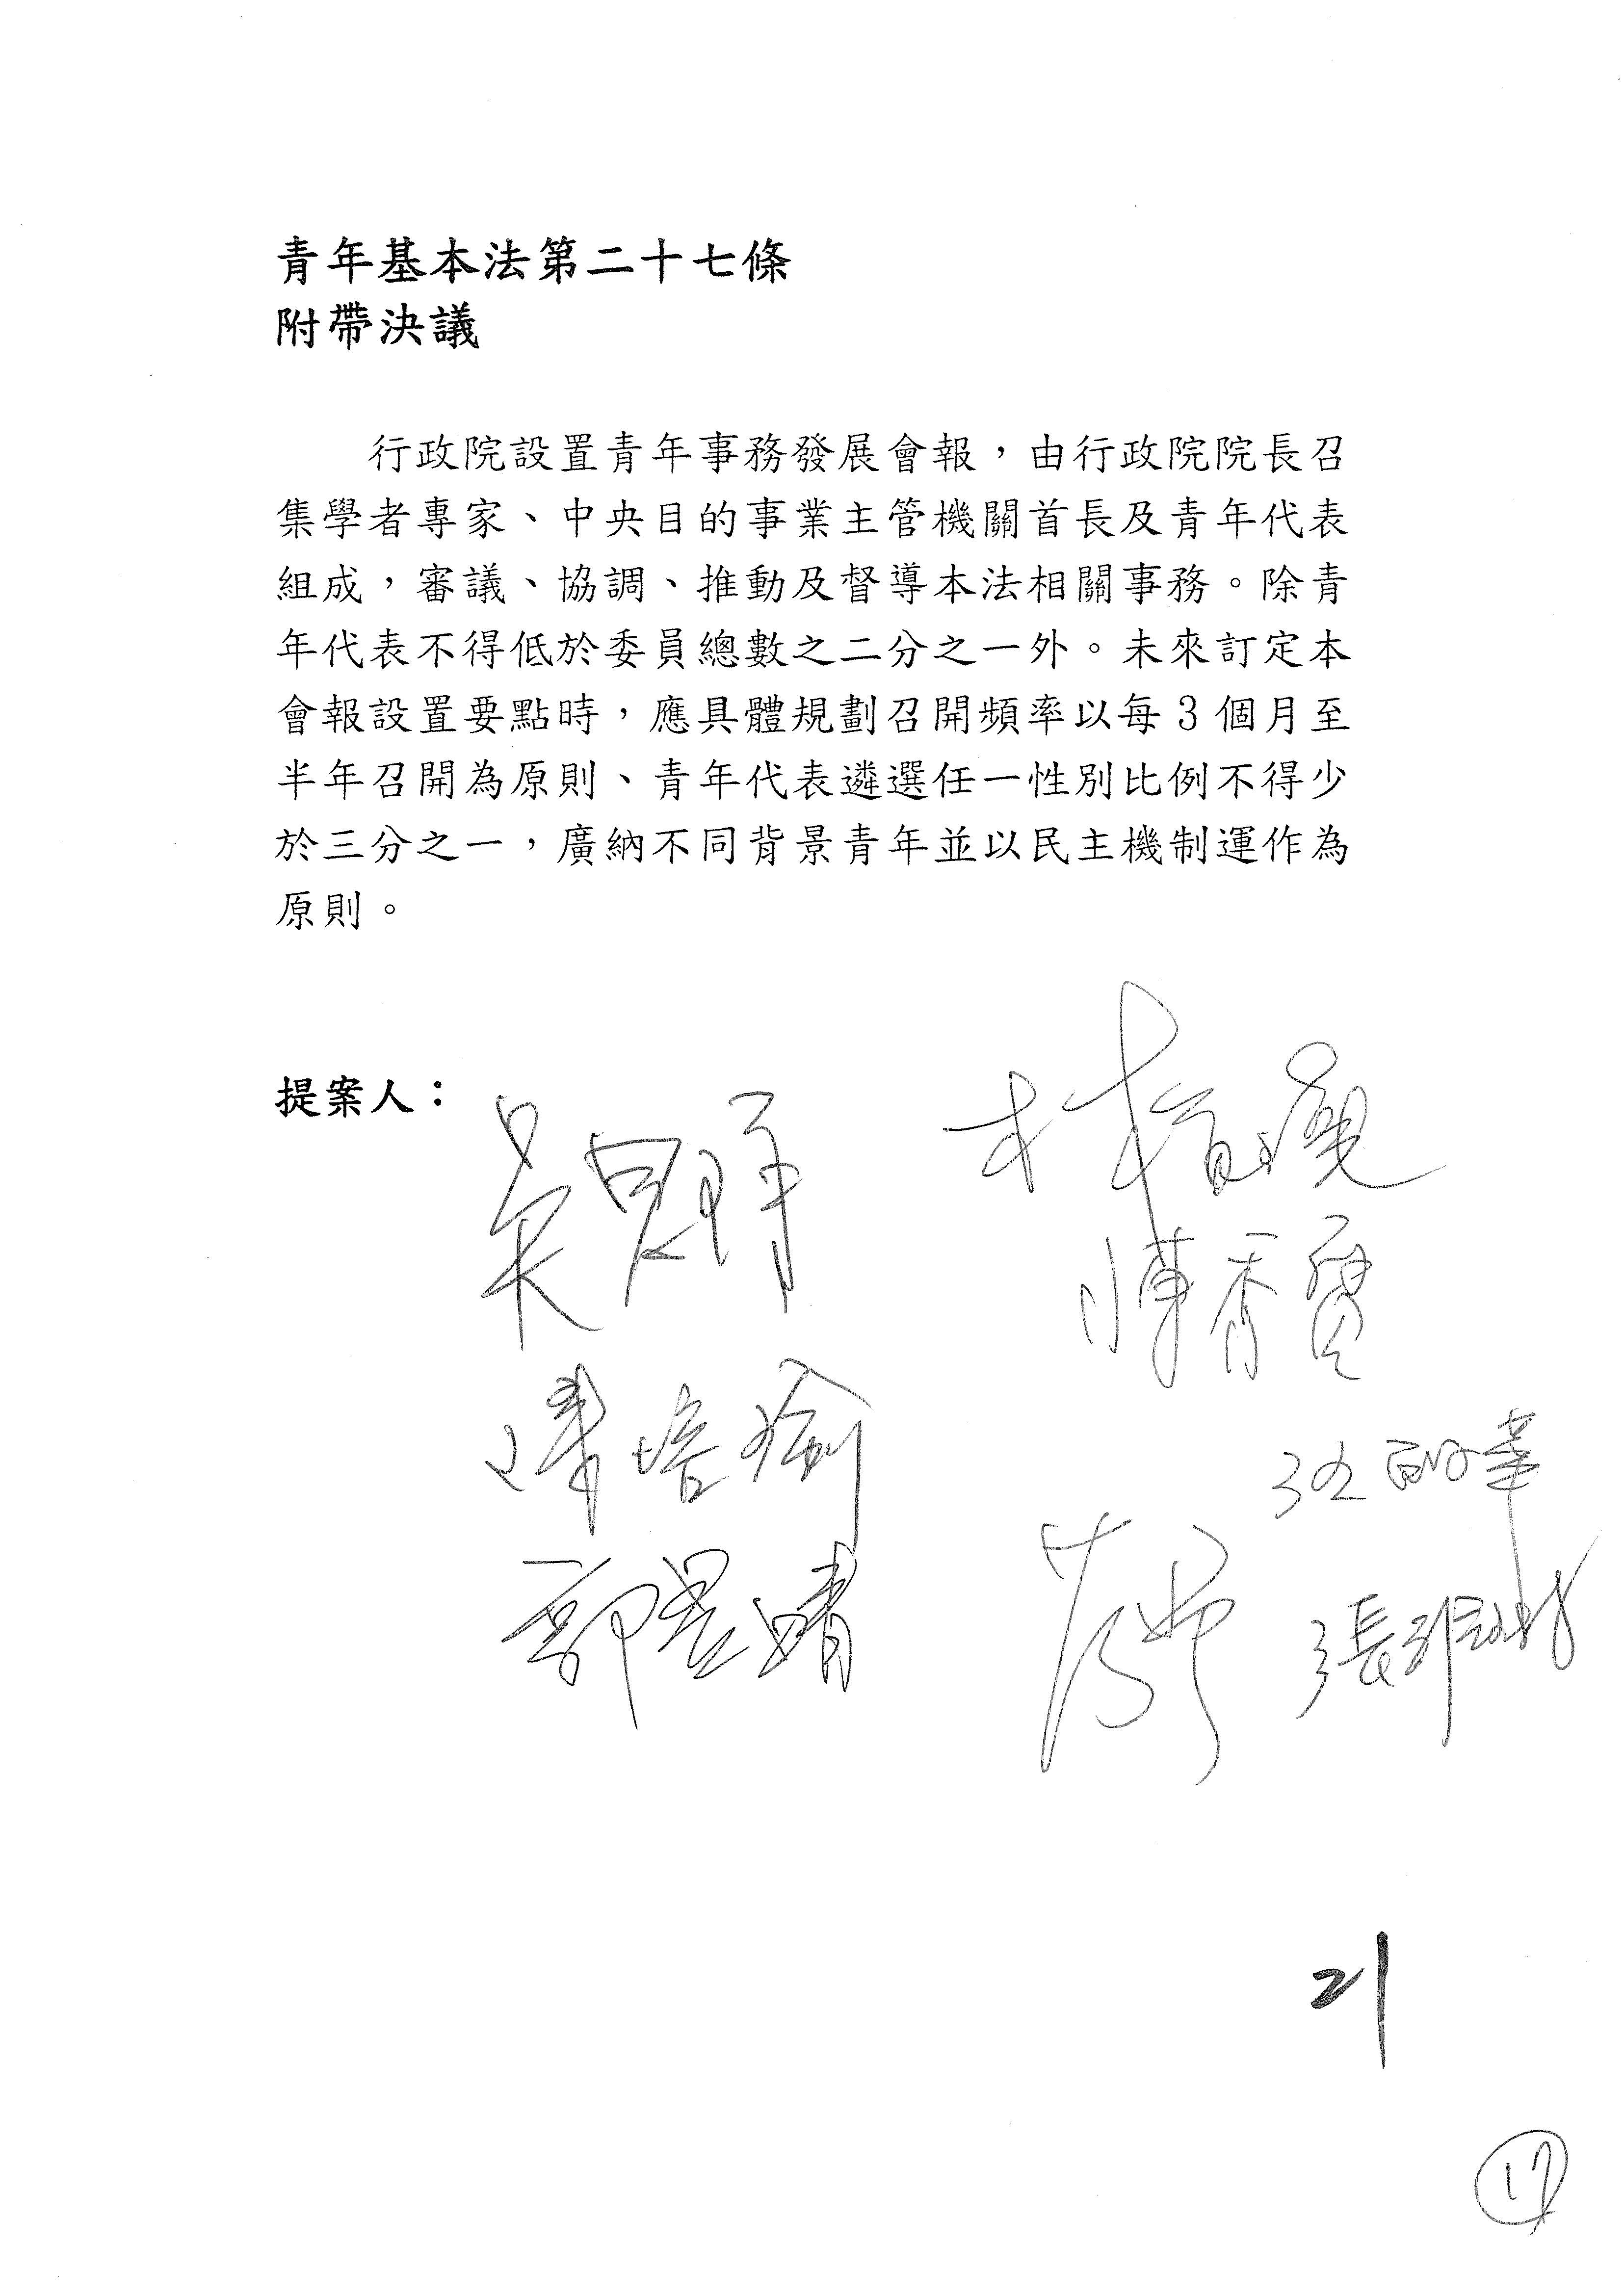 青年基本法第二十七條
附帶決議
行政院設置青年事務發展會報，由行政院院長召
集學者專家、中央目的事業主管機關首長及青年代表
組成，審議、協調、推動及督導本法相關事務。除青
年代表不得低於委員總數之二分之一外。未來訂定本
會報設置要點時，應具體規劃召開頻率以每3個月至
半年召開為原則、青年代表遴選任一性別比例不得少
於三分之一，廣納不同背景青年並以民主機制運作為
原則。
提案人：
陳培瑜
郭昱晴
21
17